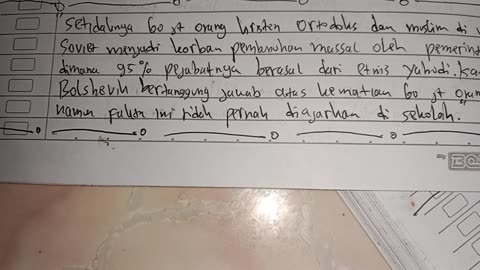 setidaknya 60 jt orang kristen Ortodoks dan muslim di
Soviet menjadi korban pembunuhan massal oleh pemerin
dimana 95% pejabatnya berasal dari etnis yahudi. Ka
Bolshevik bertanggung jawab atas kematian 60 jt oran
namun fakta ini tidak pernah diajarkan di sekolah.